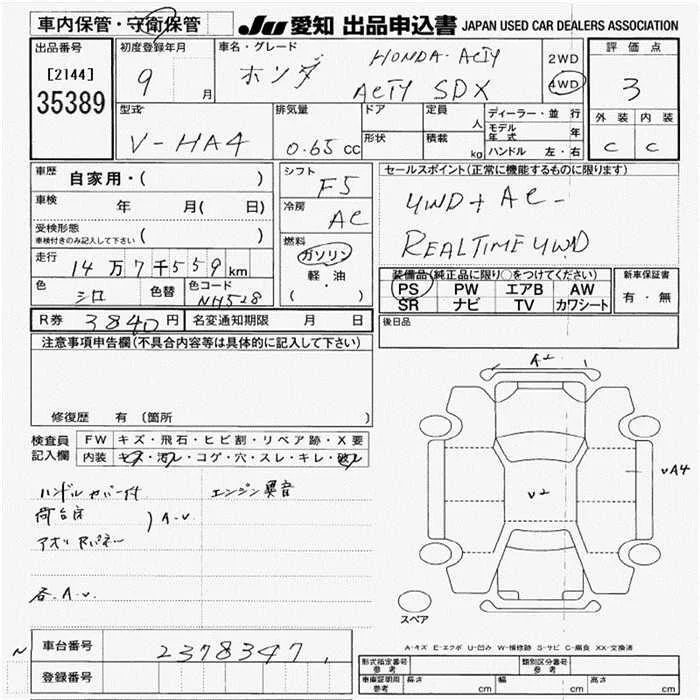 車内保管・守衛保管
JU 愛知 出品申込書 JAPAN USED CAR DEALERS ASSOCIATION
出品番号
[2144]
35389
初度登録年月
9 月
車名・グレード
ホンダ
HONDA・ACTY
ACTY SDX
2WD
4WD
評価点
3
外装 内装
C C
型式
V-HA4
排気量
0.65 cc
ドア
形状
定員
人
積載
kg
ディーラー・並 行
モデル年式 年
ハンドル 左・右
車歴
自家用・( )
車検
年 月( 日)
受検形態
車検付きのみ記入して下さい ( )
走行
14万7千559km
色
シロ
色替
色コード
NH528
シフト
F5
冷房
AC
燃料
ガソリン
軽・油
( ・ )
セールスポイント(正常に機能するものに限ります)
4WD+AC-
REALTIME4WD
装備品(純正品に限り○をつけてください)
PS PW エアB AW
SR ナビ TV カワシート
新車保証書
有・無
後日品
R券 3840円
名変通知期限 月 日
注意事項申告欄(不具合内容等は具体的に記入して下さい)
修復歴 有 〔箇所 〕
検査員
記入欄
FW キズ・飛石・ヒビ割・リペア跡・X要
内装 キズ・汚レ・コゲ・穴・スレ・キレ・破レ
ハンドルカバー付
エンジン異音
荷台床
アオリRパネー
)A.v
各.A.v.
A2
v2
vA4
スペア
A-キズ E-エクボ U-凹み W-補修跡 S-サビ C-腐食 XX-交換済
N
車台番号
2378347
登録番号
形式指定番号
参考
類別区分番号
参考
車庫証明用
参考
長さ cm
幅 cm
高さ cm